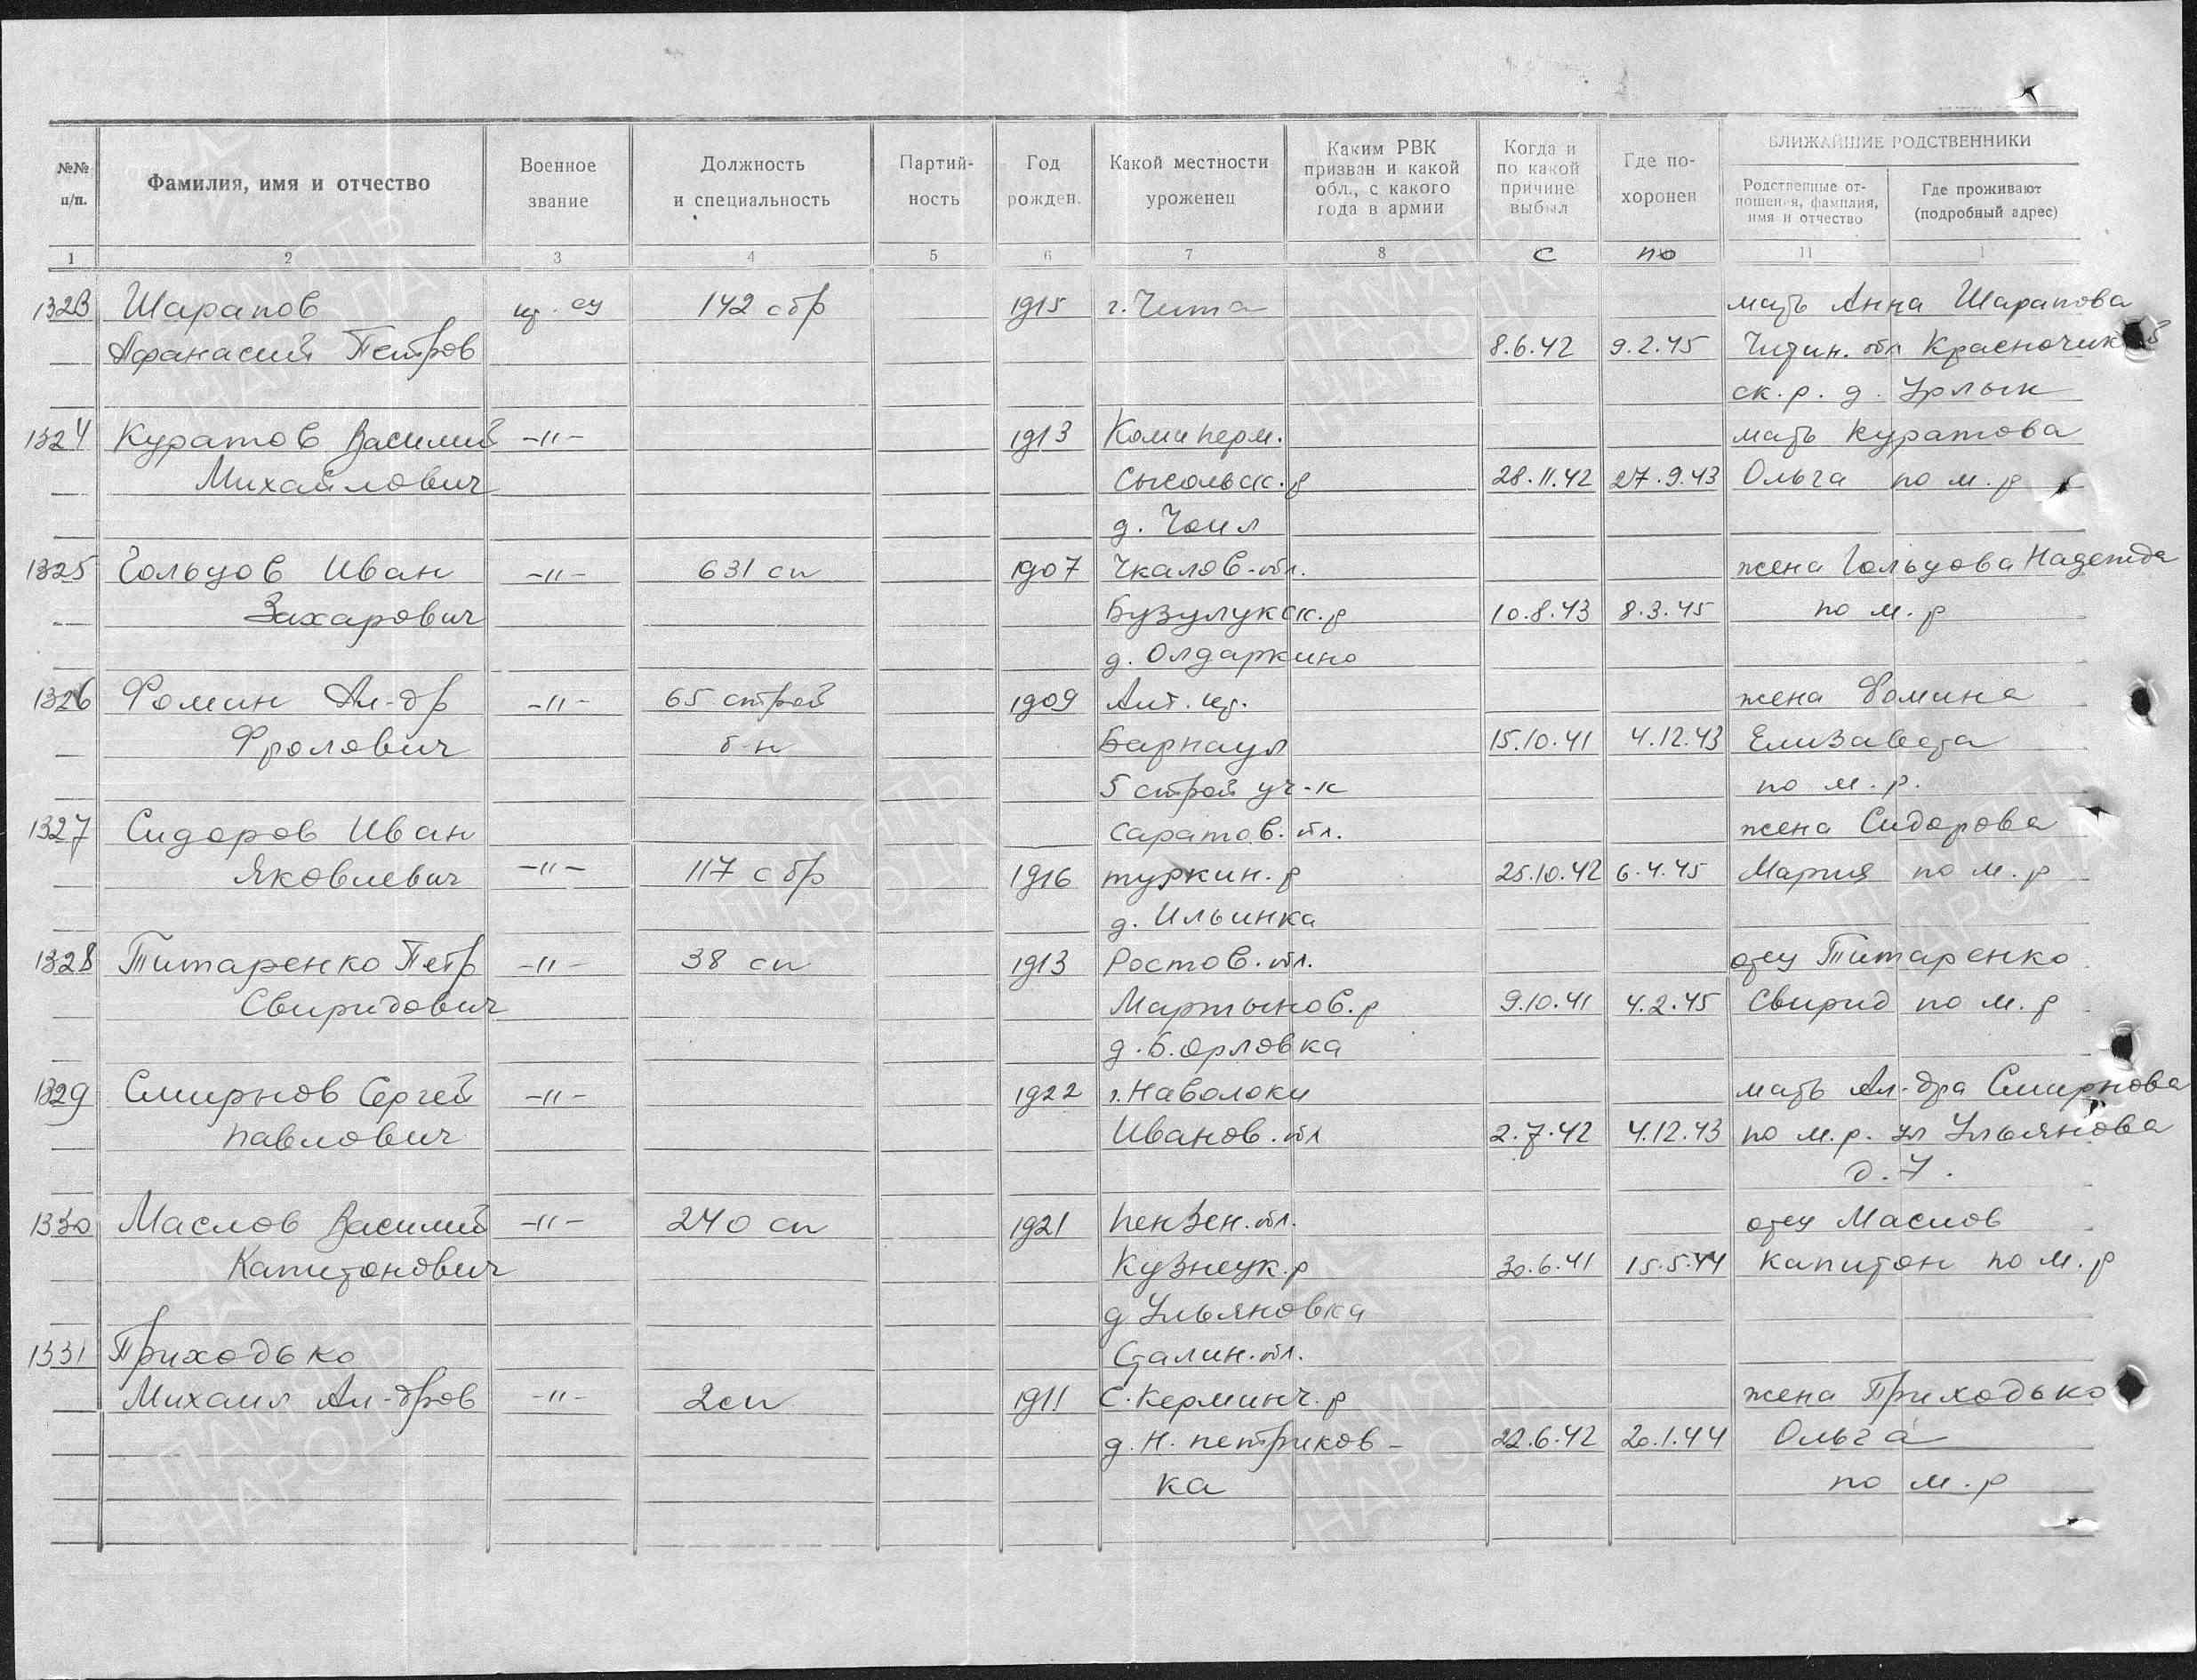 №№ п/п.
Фамилия, имя и отчество
Военное звание
Должность и специальность
Партий-ность
Год рожден.
Какой местности уроженец
Каким РВК призван и какой обл., с какого года в армии
Когда и по какой причине выбыл
Где по-хоронен
БЛИЖАЙШИЕ РОДСТВЕННИКИ
Родственные от-ношения, фамилия, имя и отчество
Где проживают (подробный адрес)
1 2 3 4 5 6 7 8 с по 11 1
1323 Шарапов 142 сбр 1915 г. Чита мать Анна Шарапова
Афанасий Петров 8.6.42 9.2.45 Читин. обл Красночик
ск. р. д. Урлык
1324 Куратов Василий -"- 1913 Коми перм. мать Куратова
Михайлович Сысольск. р 28.11.42 27.9.43 Ольга по м. р
д.
1325 Гольцов Иван -"- 631 сп 1907 Чкалов. обл. жена Гольцова Надежда
Захарович Бузулукск. р 10.8.43 8.3.45 по м. р
д. Олдаркино
1326 Фомин Ал-др -"- 65 строй 1909 Алт. кр. жена Фомина
Фролович б-н Барнаул 15.10.41 4.12.43 Елизавета
5 строй уч-к по м. р.
1327 Сидоров Иван Саратов. обл. жена Сидорова
Яковлевич -"- 117 сбр 1916 туркин. р 25.10.42 6.4.45 Мария по м. р
д. Ильинка
1328 Титаренко Петр -"- 38 сп 1913 Ростов. обл. отец Титаренко
Свиридович Мартынов. р 9.10.41 4.2.45 Свирид по м. р
д. Б. Орловка
1329 Смирнов Сергей -"- 1922 г. Наволоки мать Ал-дра Смирнова
Павлович Иванов. обл 2.7.42 4.12.43 по м. р. ул Ульянова
д. 7.
1330 Маслов Василий -"- 240 сп 1921 Пензен. обл. отец Маслов
Капитонович Кузнецк. р 30.6.41 15.5.44 Капитон по м. р
д Ульяновка
1331 Приходько Сталин. обл.
Михаил Ал-дров -"- 2 сп 1911 С. Керминч. р жена Приходько
д. Н. Петриков- 22.6.42 20.1.44 Ольга
ка по м. р
ПАМЯТЬ НАРОДА